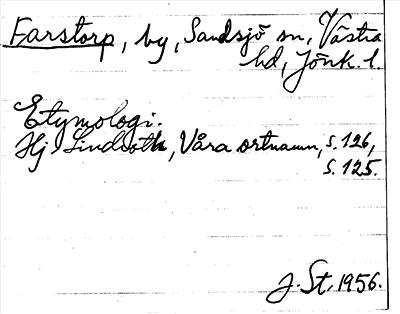 Farstorp, by, Sandsjö sn, Västra
hd, Jönk. l.
Etymologi.
Hj Lindroth, Våra ortnamn, s. 126,
s. 125.
J. St, 1956.